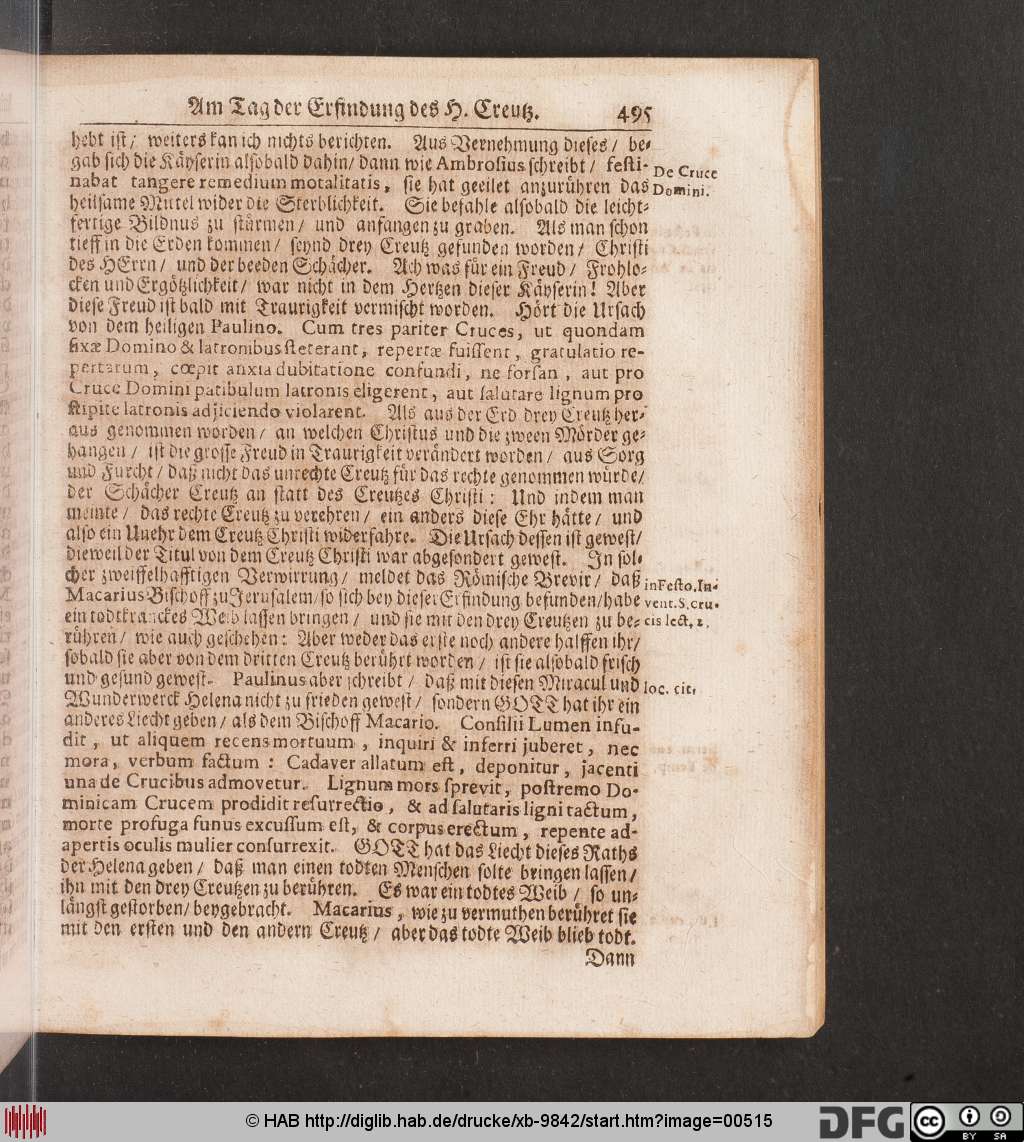 Am Tag der Erfindung des H. Creutz. 495
hebt ist; weiters kan ich nichts berichten. Aus Vernehmung dieses / be-
gab sich die Käyserin alsobald dahin / dann wie Ambrosius schreibt / festi-
De Cruce
nabat tangere remedium motalitatis, sie hat geeilet anzurühren das
Domini.
heilsame Mittel wider die Sterblichkeit. Sie befahle alsobald die leicht-
fertige Bildnus zu stürmen / und anfangen zu graben. Als man schon
tieff in die Erden kommen / seynd drey Creutz gefunden worden / Christi
des HErrn / und der beeden Schächer. Ach was für ein Freud / Frohlo-
cken und Ergötzlichkeit / war nicht in dem Hertzen dieser Käyserin! Aber
diese Freud ist bald mit Traurigkeit vermischt worden. Hört die Ursach
von dem heiligen Paulino. Cum tres pariter Cruces, ut quondam
fixæ Domino & latronibus steterant, repertæ fuissent, gratulatio re-
pertarum, cœpit anxia dubitatione confundi, ne forsan, aut pro
Cruce Domini patibulum latronis eligerent, aut salutare lignum pro
stipite latronis adjiciendo violarent. Als aus der Erd drey Creutz her-
aus genommen worden / an welchen Christus und die zween Mörder ge-
hangen / ist die grosse Freud in Traurigkeit verändert worden / aus Sorg
und Furcht / daß nicht das unrechte Creutz für das rechte genommen würde /
der Schächer Creutz an statt des Creutzes Christi: Und indem man
meinte / das rechte Creutz zu verehren / ein anders diese Ehr hätte / und
also ein Unehr dem Creutz Christi widerfahre. Die Ursach dessen ist gewest /
dieweil der Titul von dem Creutz Christi war abgesondert gewest. In sol-
cher zweiffelhafftigen Verwirrung / meldet das Römische Brevir / daß
in Festo. In-
Macarius Bischoff zu Jerusalem / so sich bey dieser Erfindung befunden / habe
vent. S. Cru-
ein todtkranckes Weib lassen bringen / und sie mit den drey Creutzen zu be-
cis lect. 2.
rühren / wie auch geschehen: Aber weder das erste noch andere halffen ihr /
sobald sie aber von dem dritten Creutz berührt worden / ist sie alsobald frisch
und gesund gewest. Paulinus aber schreibt / daß mit diesen Miracul und
loc. cit.
Wunderwerck Helena nicht zu frieden gewest / sondern GOTT hat ihr ein
anderes Liecht geben / als dem Bischoff Macario. Consilii Lumen infu-
dit, ut aliquem recens mortuum, inquiri & inferri juberet, nec
mora, verbum factum: Cadaver allatum est, deponitur, jacenti
una de Crucibus admovetur. Lignum mors sprevit, postremo Do-
minicam Crucem prodidit resurrectio, & ad salutaris ligni tactum,
morte profuga funus excussum est, & corpus erectum, repente ad-
apertis oculis mulier consurrexit. GOTT hat das Liecht dieses Raths
der Helena geben / daß man einen todten Menschen solte bringen lassen /
ihn mit den drey Creutzen zu berühren. Es war ein todtes Weib / so un-
längst gestorben / beygebracht. Macarius, wie zu vermuthen berühret sie
mit den ersten und den andern Creutz / aber das todte Weib blieb todt.
Dann
© HAB http://diglib.hab.de/drucke/xb-9842/start.htm?image=00515
DFG
cc
BY SA